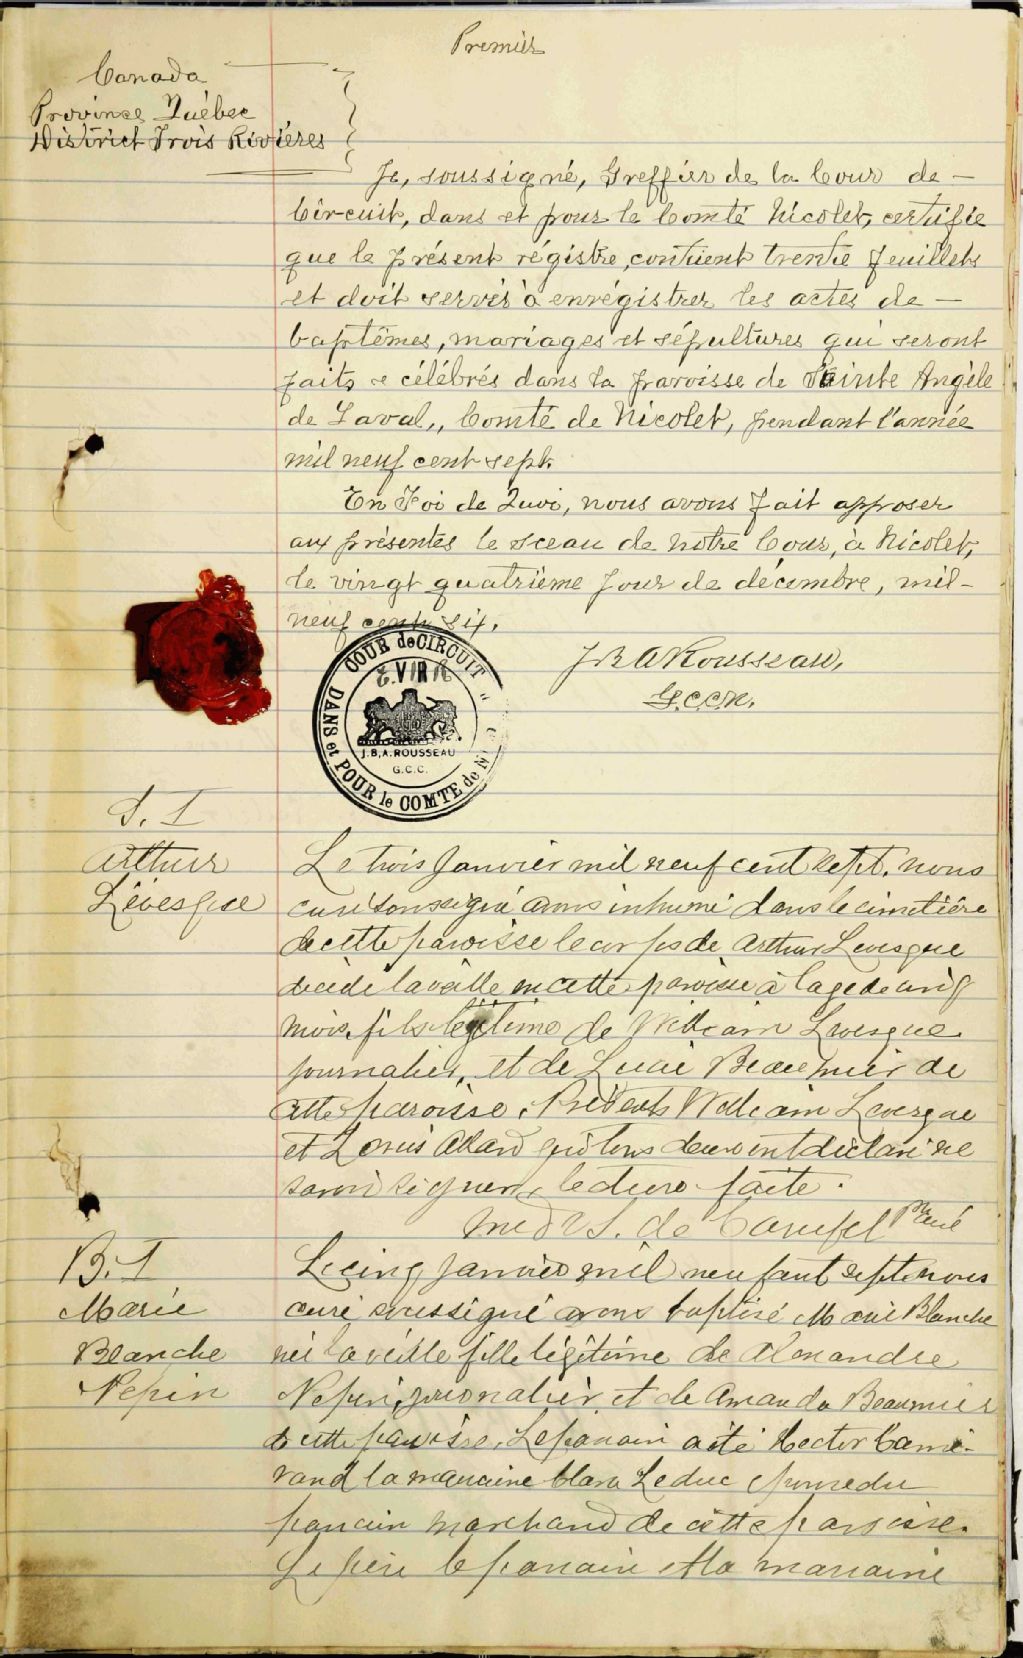 Premier
Canada
Province Québec
District Trois Rivières
Je, soussigné, Greffier de la Cour de –
Circuit, dans et pour le Comté Nicolet, certifie
que le présent régistre, contient trente feuillets
et doit servir à enrégistrer les actes de –
baptêmes, mariages et sépultures qui seront
faits & célébrés dans la paroisse de Sainte Angèle
de Laval,, Comté de Nicolet, pendant l'année
mil neuf cent sept.
En Foi de Quoi, nous avons fait apposer
aux présentes le sceau de notre Cour, à Nicolet,
le vingt quatrième jour de décembre, mil –
neuf cent six.
J B A Rousseau,
G.C.C.N.
COUR de CIRCUIT
DANS et POUR le COMTE de
J.B.A. ROUSSEAU
G.C.C.
S. I
Arthur
Lévesque
Le trois Janvier mil neuf cent sept, nous
curé soussigné avons inhumé dans le cimetière
de cette paroisse le corps de Arthur Levesque
décédé la veille en cette paroisse à l'age de cinq
mois, fils légitime de William Levesque
journalier, et de Lucie Beaumier de
cette paroisse. Présents William Levesque
et Louis Allard qui tous deux ont déclaré ne
savoir signer, lecture faite.
de Carufel Ptre curé
B. I
Marie
Blanche
Nepin
Le cinq Janvier mil neuf cent sept nous
curé soussigné avons baptisé Marie Blanche
née la veille fille légitime de Alexandre
Nepin, journalier, et de Amanda Beaumier
de cette paroisse. Le parrain a été Hector Cami-
rand la marraine Clara Leduc épouse du
parrain marchand de cette paroisse.
Le père le parrain et la marraine